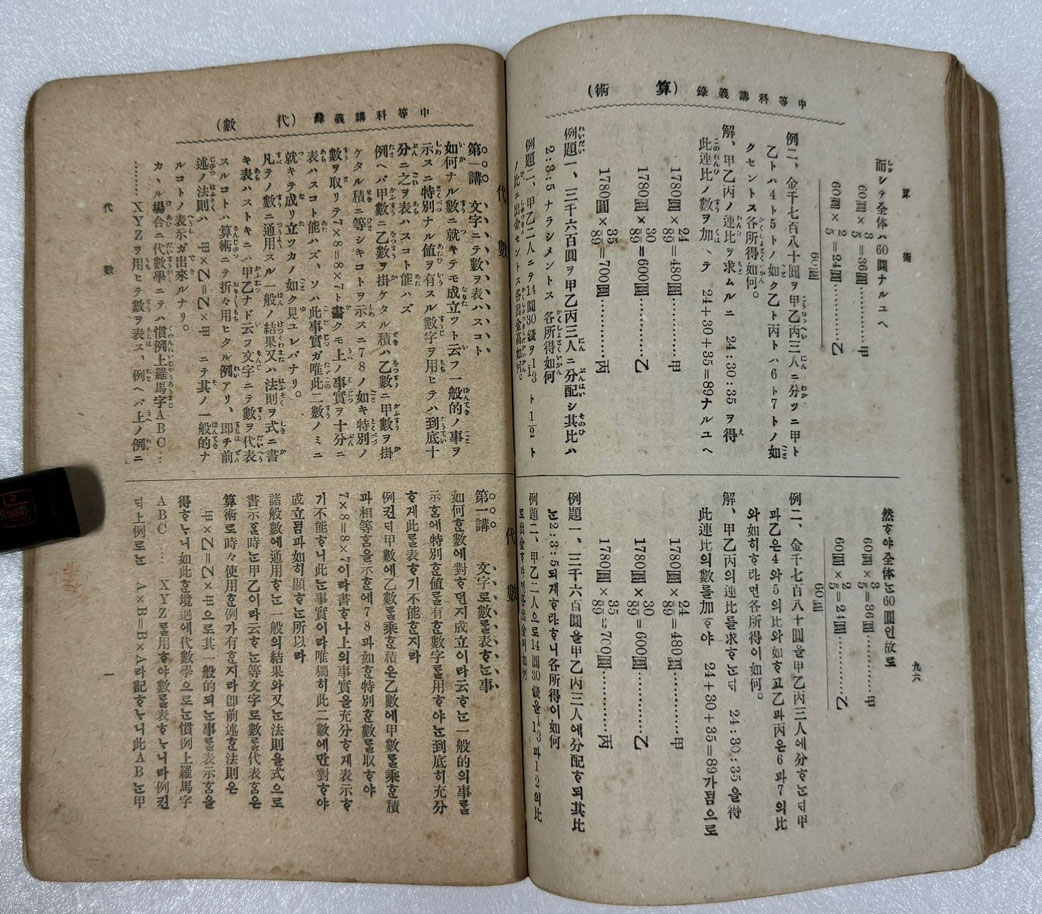 中等科講義錄 (算術)
算術
而シテ全体ハ60圓ナルユヘ
60圓×3/5=36圓………甲
60圓×2/5=24圓………乙
60圓
例二、金千七百八十圓ヲ甲乙丙三人ニ分ツニ甲ト
乙トハ4ト5トノ如ク乙ト丙トハ6ト7トノ如
クセントス各所得如何。
解、甲乙丙ノ連比ヲ求ムルニ 24:30:35 ヲ得
此連比ノ數ヲ加ヘテ 24+30+35=89ナルユヘ
1780圓×24/89=480圓………甲
1780圓×30/89=600圓………乙
1780圓×35/89=700圓………丙
例題一、三千六百圓ヲ甲乙丙三人ニ分配シ其比ハ
2:3:5ナラシメントス各所得如何
例題二、甲乙二人ニテ14圓30錢ヲ
九六
然ᄒᆞ야全体ᄂᆞᆫ60圓인故로
60圓×3/5=36圓………甲
60圓×2/5=24圓………乙
60圓
例二、金千七百八十圓을甲乙丙三人에分ᄒᆞᄂᆞᆫᄃᆡ甲
과乙은4와5의比와如ᄒᆞ고乙과丙은6과7의比
와如히ᄒᆞ라면各所得이如何。
解、甲乙丙의連比를求ᄒᆞᄂᆞᆫᄃᆡ 24:30:35을得
此連比의數를加ᄒᆞ야 24+30+35=89가됨으로
1780圓×24/89=480圓………甲
1780圓×30/89=600圓………乙
1780圓×35/89=700圓………丙
例題一、三千六百圓을甲乙丙三人에分配ᄒᆞ되其比
ᄂᆞᆫ2:3:5되게ᄒᆞ랴ᄒᆞ니各所得이如何
例題二、甲乙二人으로14圓30錢을
中等科講義錄 (代數)
代數
第一講 文字ニテ數ヲ表ハスコト
如何ナル數ニ就キテモ成立ツト云フ一般的ノ事ヲ
示スニ特別ナル値ヲ有スル數字ヲ用ヒテハ到底十
分ニ之ヲ表ハスコト能ハズ
例ヘバ甲數ニ乙數ヲ掛ケタル積ハ乙數ニ甲數ヲ掛
ケタル積ニ等シキコトヲ示スニ7 8ノ如キ特別ノ
數ヲ取リテ7×8=8×7ト書クモ上ノ事實ヲ十分ニ
表ハスコト能ハズ、ソハ此事實ガ唯此二數ノミニ
就キテ成リ立ツカノ如ク見ユレバナリ。
凡テノ數ニ通用スル一般ノ結果又ハ法則ヲ式ニ書
キ表ハストキニハ甲乙ナド云フ文字ニテ數ヲ代表
スルコトハ算術ニテ折々用ヒタル例アリ、即チ前
述ノ法則ハ 甲×乙=乙×甲 ニテ其ノ一般的ナ
ルコトノ表示ガ出來ルナリ。
カヽル場合ニ代數學ニテハ慣例上羅馬字ABC…
………XYZヲ用ヒテ數ヲ表ス、例ヘバ上ノ例ニ
代數
代數
第一講 文字로數를表ᄒᆞᄂᆞᆫ事
如何ᄒᆞᆫ數에對ᄒᆞ던지成立이라云ᄒᆞᄂᆞᆫ一般的의事를
示ᄒᆞᆷ에特別ᄒᆞᆫ値를有ᄒᆞᆫ數字를用ᄒᆞ야ᄂᆞᆫ到底히充分
ᄒᆞ게此를表ᄒᆞ기不能ᄒᆞᆫ지라
例컨ᄃᆡ甲數에乙數를乘ᄒᆞᆫ積은乙數에甲數를乘ᄒᆞᆫ積
과相等ᄒᆞᆷ을示ᄒᆞᆷ에7 8과如ᄒᆞᆫ特別ᄒᆞᆫ數를取ᄒᆞ야
7×8=8×7이라書ᄒᆞ나上의事實을充分ᄒᆞ게表示ᄒᆞ
기不能ᄒᆞ니此ᄂᆞᆫ事實이라唯獨히此二數에만對ᄒᆞ야
成立됨과如히顯ᄒᆞᄂᆞᆫ所以라
諸般數에通用ᄒᆞᄂᆞᆫ一般의結果와又ᄂᆞᆫ法則을式으로
書示ᄒᆞᆯ時ᄂᆞᆫ甲乙이라云ᄒᆞᄂᆞᆫ等文字로數를代表ᄒᆞᆷ은
算術로時々使用ᄒᆞᆫ例가有ᄒᆞᆫ지라卽前述ᄒᆞᆫ法則은
甲×乙=乙×甲으로其一般的되ᄂᆞᆫ事를表示ᄒᆞᆷ을
得ᄒᆞᄂᆞ니如此ᄒᆞᆫ境遇에代數學으로ᄂᆞᆫ慣例上羅馬字
ABC…… XYZ를用ᄒᆞ야數를表ᄒᆞᄂᆞ니라例컨
ᄃᆡ上例로ᄂᆞᆫ A×B=B×A라記ᄒᆞᄂᆞ니此ABᄂᆞᆫ甲
一